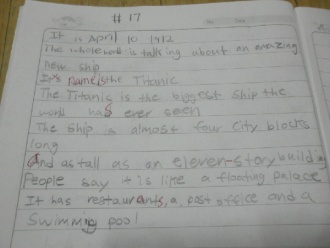 # 17
It is April 10 1912
The whole work is talking about an amazing
new ship
It's name is the Titanic
The Titanic is the biggest ship the
work has ever seen
The ship is almost four city blocks
long
And as tall as an eleven-story building
People say it is like a floating palace
It has restaurants, a post office and a
swimming pool